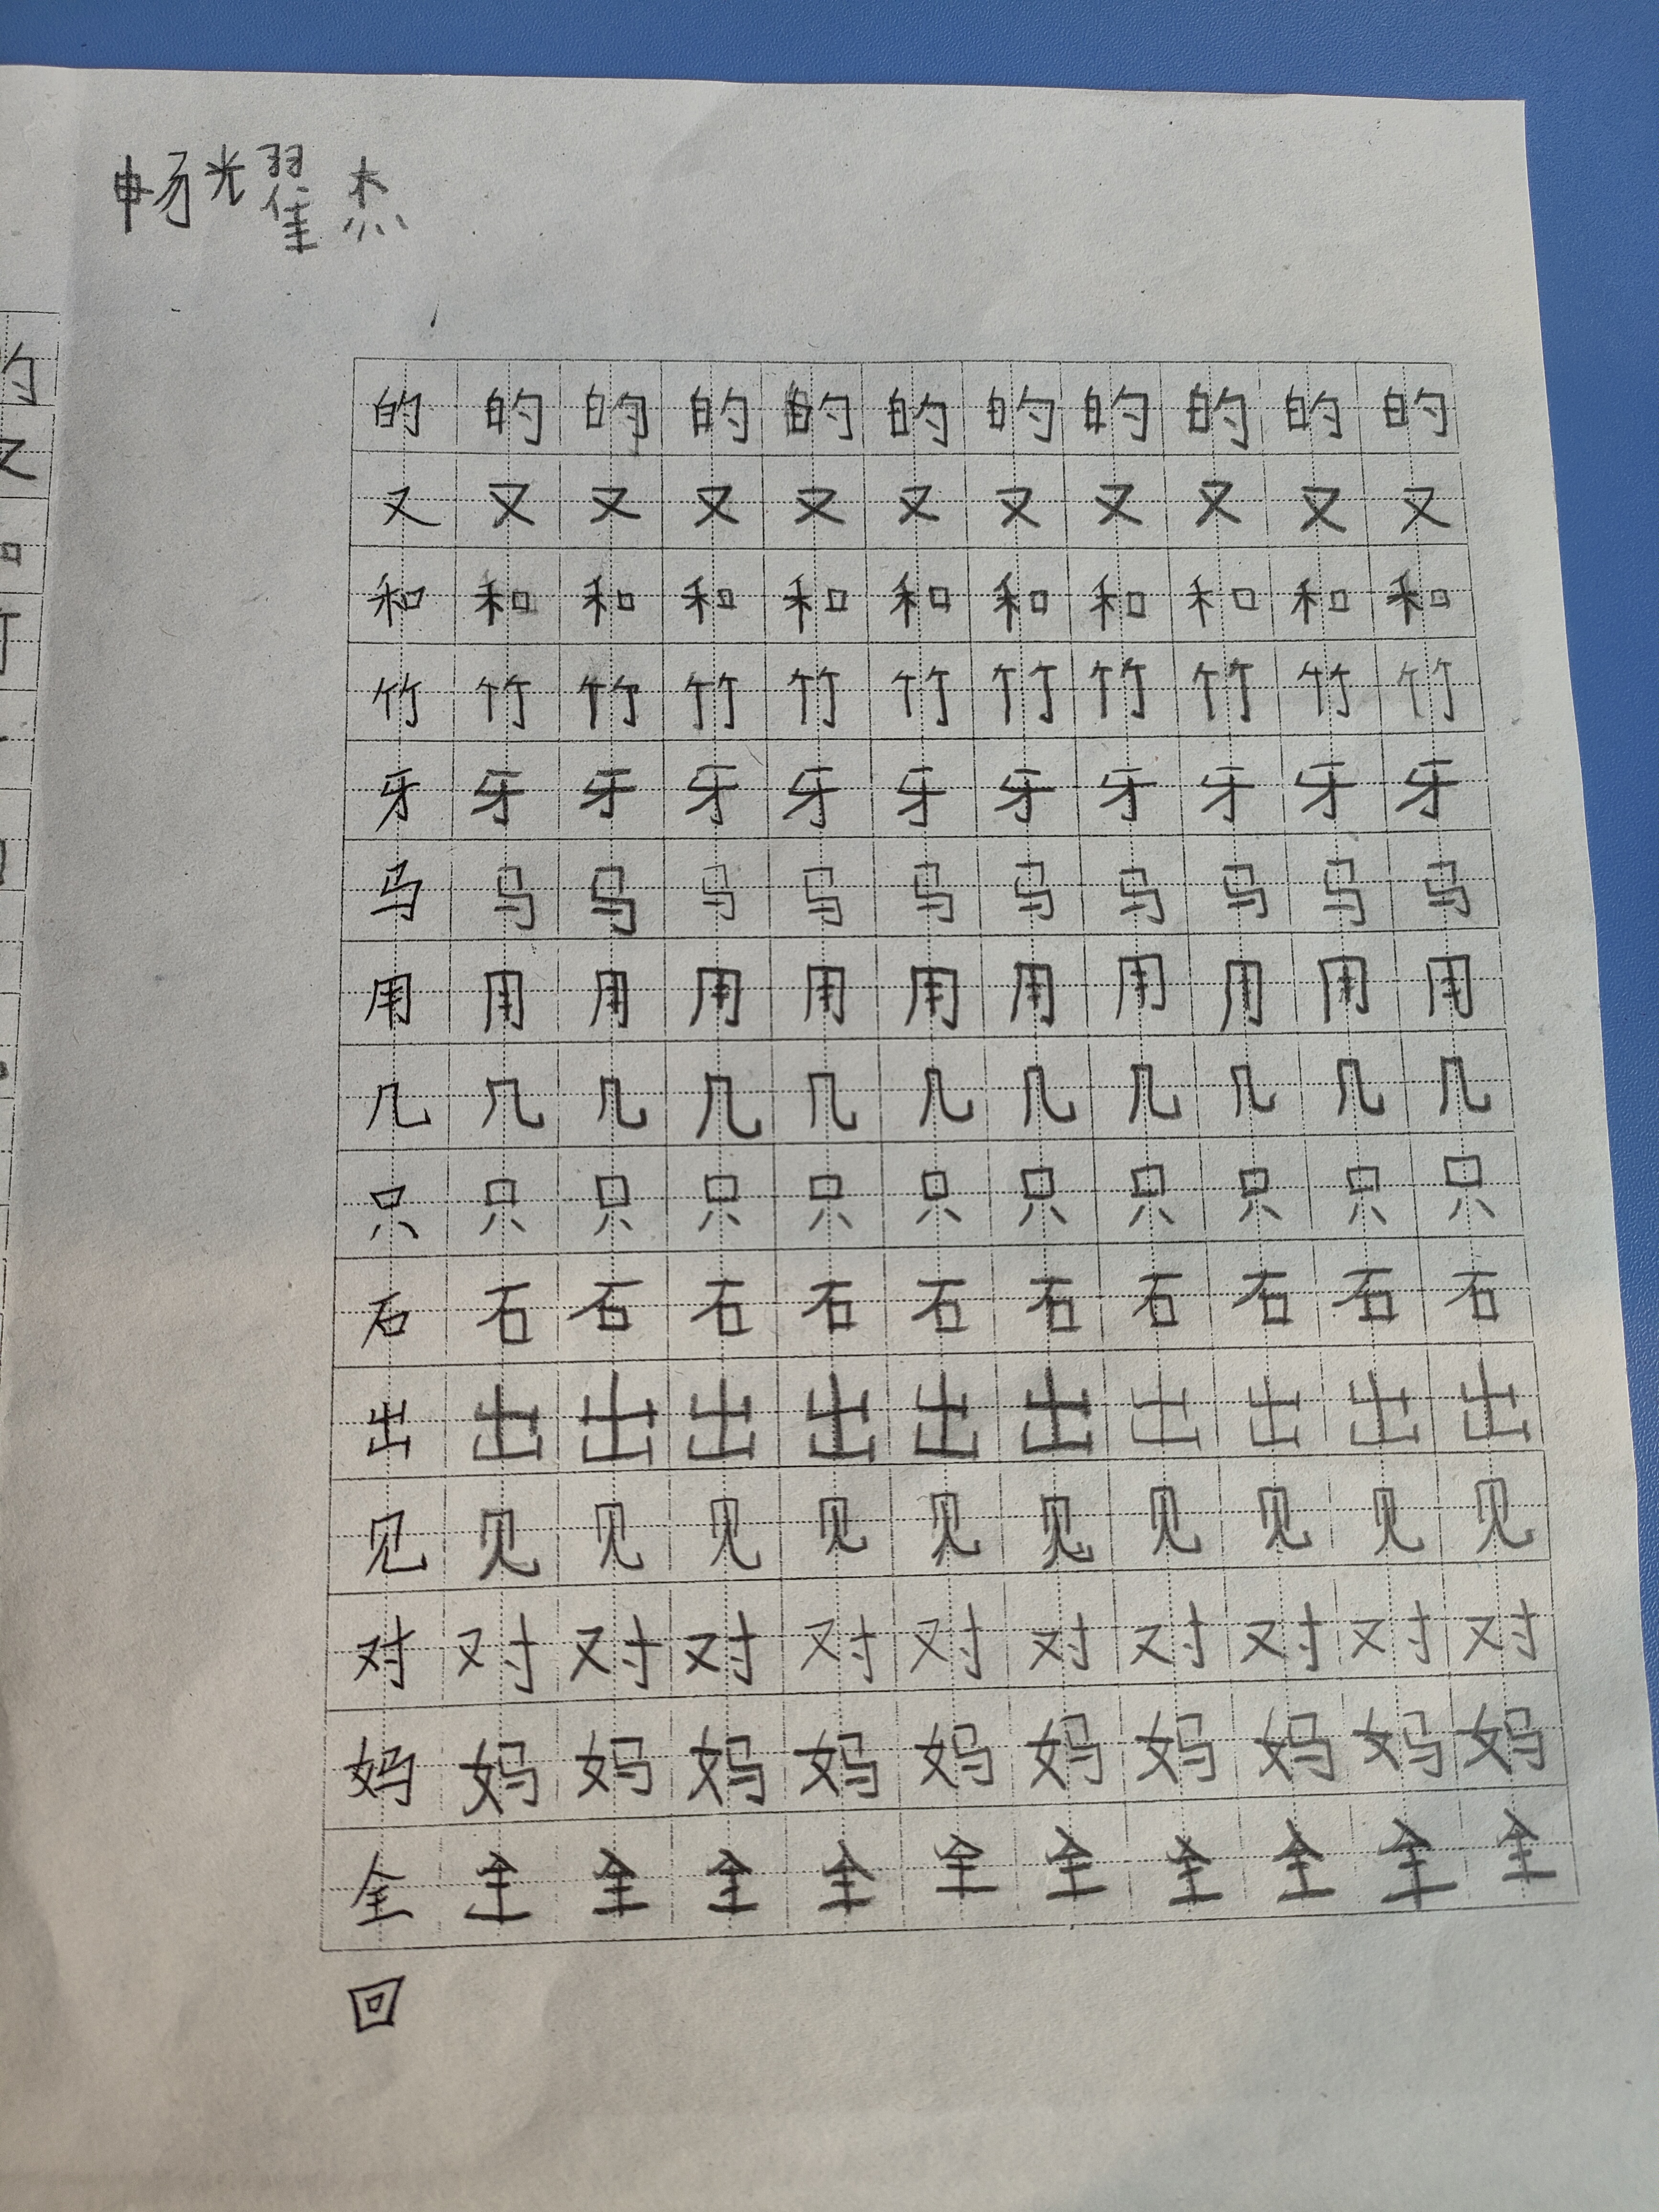 畅耀杰
的 的 的 的 的 的 的 的 的 的 的
又 又 又 又 又 又 又 又 又 又 又
和 和 和 和 和 和 和 和 和 和 和
竹 竹 竹 竹 竹 竹 竹 竹 竹 竹 竹
牙 牙 牙 牙 牙 牙 牙 牙 牙 牙 牙
马 马 马 马 马 马 马 马 马 马 马
用 用 用 用 用 用 用 用 用 用 用
几 几 几 几 几 几 几 几 几 几 几
只 只 只 只 只 只 只 只 只 只 只
石 石 石 石 石 石 石 石 石 石 石
出 出 出 出 出 出 出 出 出 出 出
见 见 见 见 见 见 见 见 见 见 见
对 对 对 对 对 对 对 对 对 对 对
妈 妈 妈 妈 妈 妈 妈 妈 妈 妈 妈
全 全 全 全 全 全 全 全 全 全 全
回